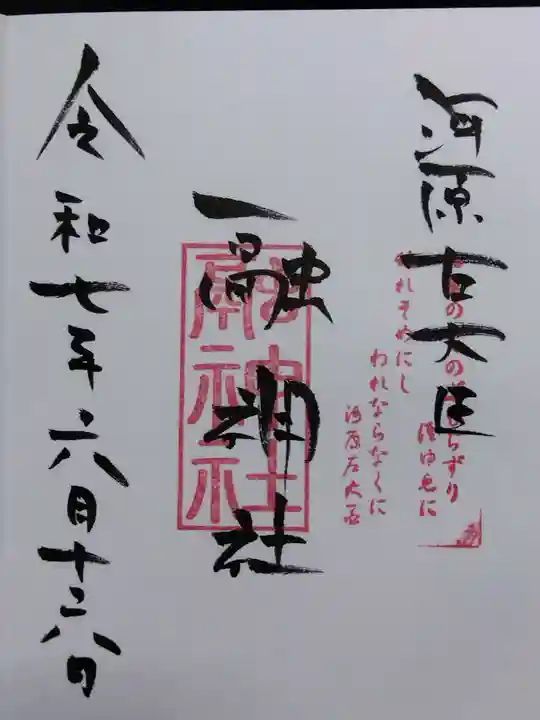 河原左大臣
もちずり
誰ゆゑに
れそめにし
われならなくに
河原左大臣
融神社
融神社
令和七年六月十六日